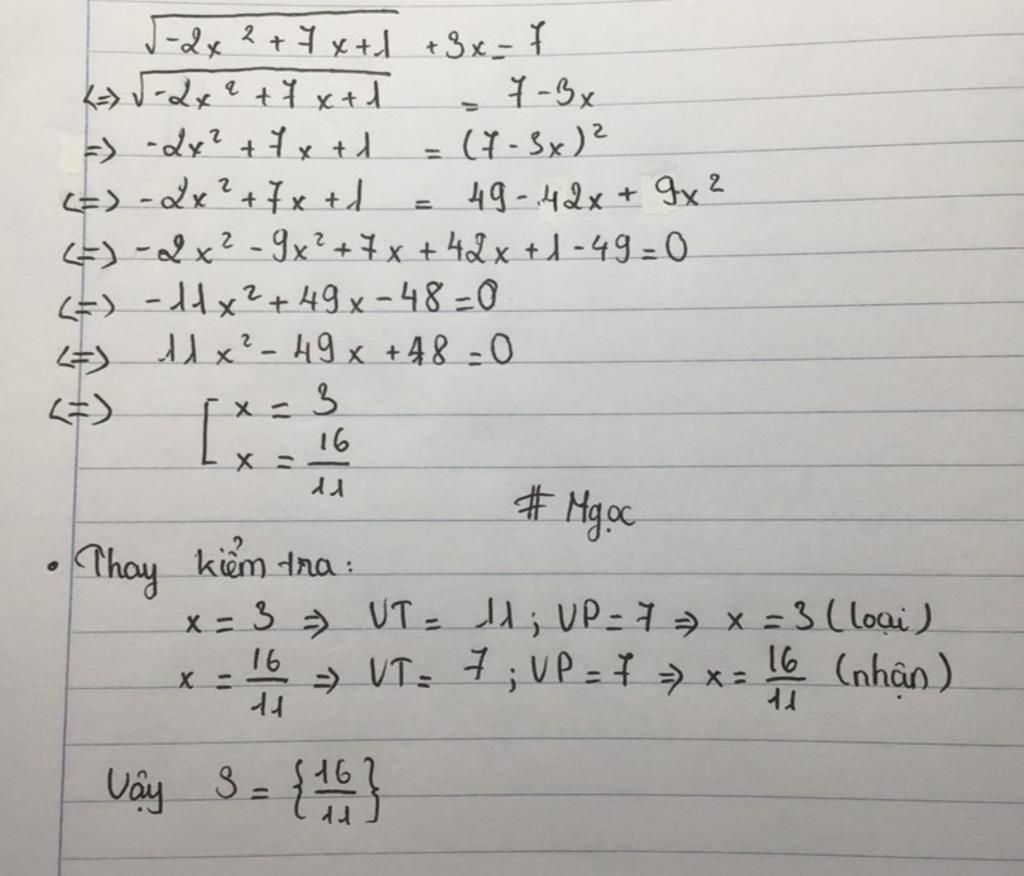 √(-2x² + 7x + 1) + 3x = 7
<=> √(-2x² + 7x + 1) = 7 - 3x
=> -2x² + 7x + 1 = (7 - 3x)²
<=> -2x² + 7x + 1 = 49 - 42x + 9x²
<=> -2x² - 9x² + 7x + 42x + 1 - 49 = 0
<=> -11x² + 49x - 48 = 0
<=> 11x² - 49x + 48 = 0
<=> [ x = 3
x = 16/11
# Ngọc
• Thay kiểm tra:
x = 3 => VT = 11 ; VP = 7 => x = 3 (loại)
x = 16/11 => VT = 7 ; VP = 7 => x = 16/11 (nhận)
Vậy S = {16/11}